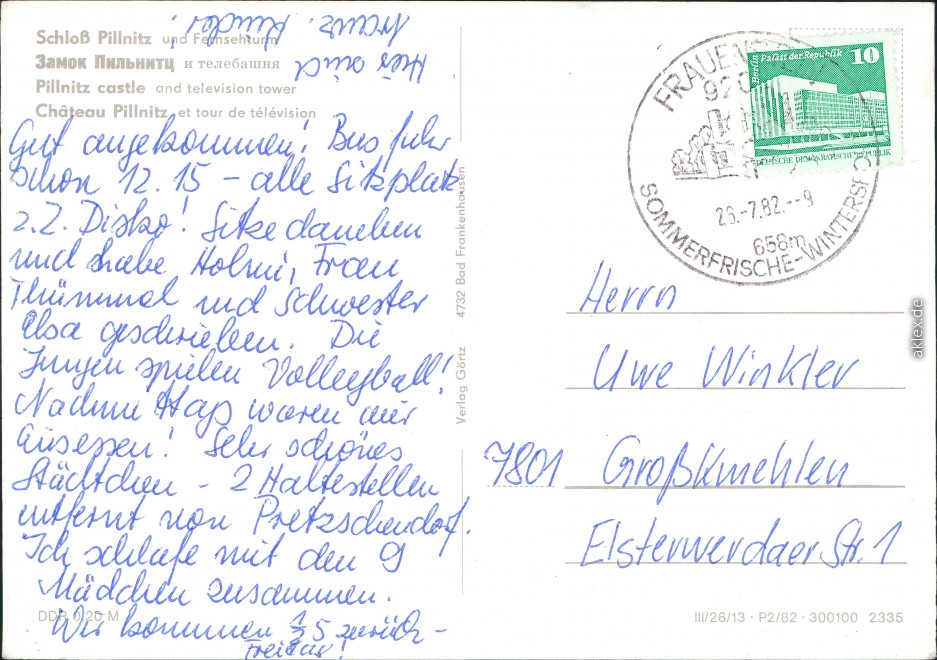 Schloß Pillnitz und Fernsehturm
Замок Пильнитц и телебашня
Pillnitz castle and television tower
Château Pillnitz et tour de télévision
Gut angekommen! Bus fuhr
schon 12.15 – alle Sitzplatz
z.Z. Disko! Sitze daneben
und habe Holmi, Frau
Thümmel und Schwester
Elsa geschrieben. Die
Jungen spielen Volleyball!
Nachmittags waren wir
Eisessen! Sehr schönes
Städtchen – 2 Haltestellen
entfernt von Pretzschendorf.
Ich schlafe mit den 9
Mädchen zusammen.
Wir kommen 1/2 5 zurück –
Freitag!
Hier sind
Kinder!
DDR 0,20 M
Verlag Görtz 4732 Bad Frankenhausen
FRAUENST
920
26.-7.82.--9
658m
SOMMERFRISCHE-WINTERSPO
Berlin Palast der Republik 10
DEUTSCHE DEMOKRATISCHE REPUBLIK
Herrn
Uwe Winkler
7801 Großkmehlen
Elsterwerdaer Str. 1
III/26/13 · P2/82 · 300100 2335
aklex.de